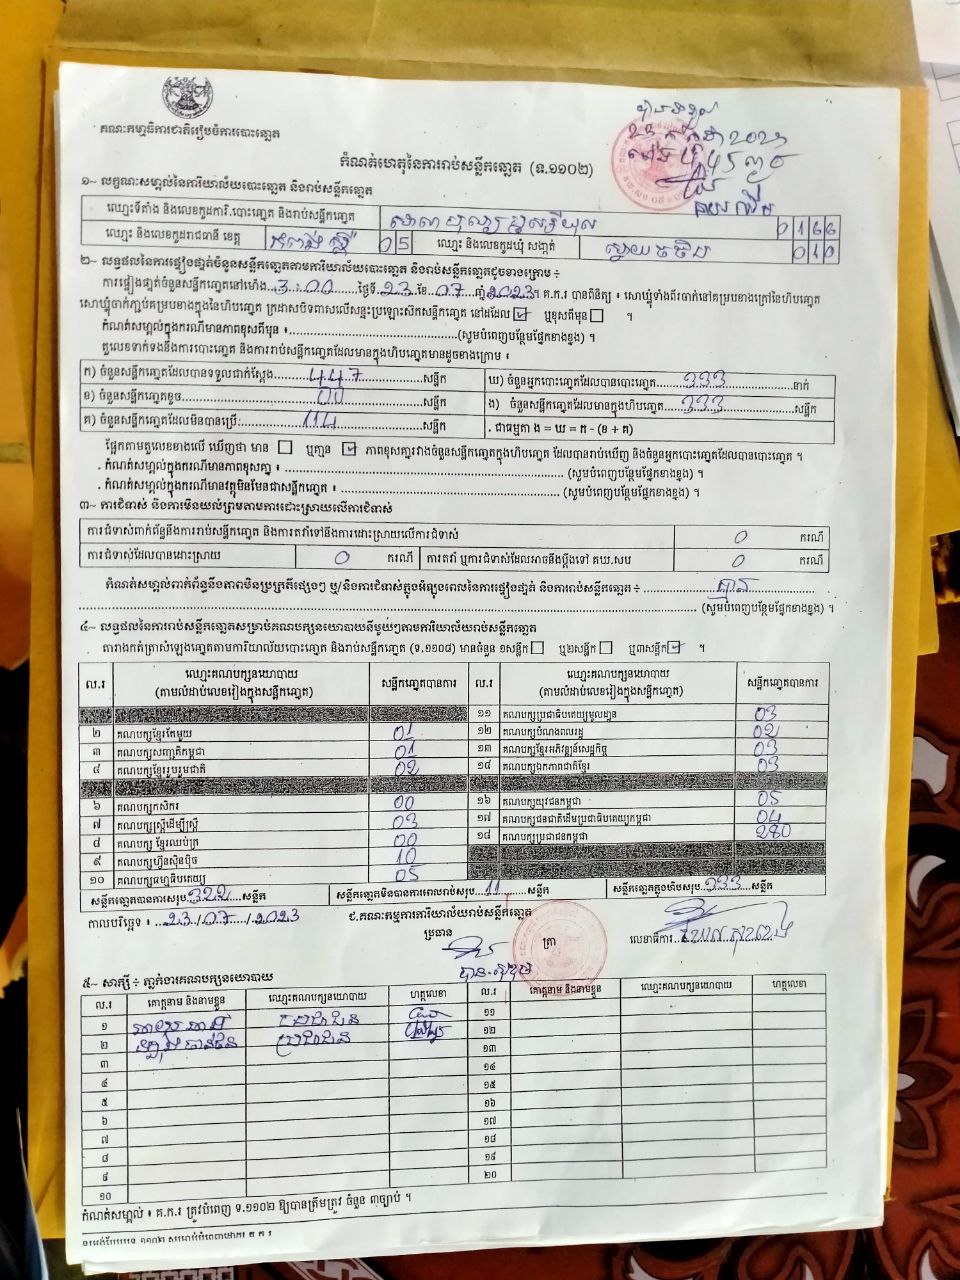 គណៈកម្មាធិការជាតិរៀបចំការបោះឆ្នោត
កំណត់ហេតុនៃការរាប់សន្លឹកឆ្នោត (ទ.១១០២)
១~ លក្ខណៈសម្គាល់នៃការិយាល័យបោះឆ្នោត និងរាប់សន្លឹកឆ្នោត
ឈ្មោះទីតាំង និងលេខកូដការិ.បោះឆ្នោត និងរាប់សន្លឹកឆ្នោត 0166
ឈ្មោះ និងលេខកូដរាជធានី ខេត្ត កំពង់ស្ពឺ 05 ឈ្មោះ និងលេខកូដឃុំ សង្កាត់ ស្វាយចចិប 010
២~ លទ្ធផលនៃការផ្ទៀងផ្ទាត់ចំនួនសន្លឹកឆ្នោតតាមការិយាល័យបោះឆ្នោត និងរាប់សន្លឹកឆ្នោតដូចខាងក្រោម ៖
ការផ្ទៀងផ្ទាត់ចំនួនសន្លឹកឆ្នោតនៅម៉ោង 3:00 ថ្ងៃទី 23 ខែ 07 ឆ្នាំ 2023 ។ គ.ក.រ បានពិនិត្យ ៖ សោឃ្លុំទាំងពីរចាក់នៅគម្របខាងក្រៅនៃហិបឆ្នោត
សោឃ្លុំចាក់ភ្ជាប់គម្របខាងក្នុងនៃហិបឆ្នោត ក្រដាសបិទពាសលើសន្ទះប្រឡោះស៊កសន្លឹកឆ្នោត នៅដដែល ☑ ឬខុសពីមុន ☐ ។
កំណត់សម្គាល់ក្នុងករណីមានភាពខុសពីមុន ៖ (សូមបំពេញបន្ថែមផ្នែកខាងខ្នង) ។
តួលេខទាក់ទងនឹងការបោះឆ្នោត និងការរាប់សន្លឹកឆ្នោតដែលមានក្នុងហិបឆ្នោតមានដូចខាងក្រោម ៖
ក) ចំនួនសន្លឹកឆ្នោតដែលបានទទួលជាក់ស្តែង 447 សន្លឹក ឃ) ចំនួនអ្នកបោះឆ្នោតដែលបានបោះឆ្នោត 333 នាក់
ខ) ចំនួនសន្លឹកឆ្នោតខូច 00 សន្លឹក ង) ចំនួនសន្លឹកឆ្នោតដែលមានក្នុងហិបឆ្នោត 333 សន្លឹក
គ) ចំនួនសន្លឹកឆ្នោតដែលមិនបានប្រើ: 114 សន្លឹក . ជាធម្មតា ង = ឃ = ក - (ខ + គ)
ផ្អែកតាមតួលេខខាងលើ ឃើញថា មាន ☐ ឬគ្មាន ☑ ភាពខុសគ្នារវាងចំនួនសន្លឹកឆ្នោតក្នុងហិបឆ្នោត ដែលបានរាប់ឃើញ និងចំនួនអ្នកបោះឆ្នោតដែលបានបោះឆ្នោត ។
. កំណត់សម្គាល់ក្នុងករណីមានភាពខុសគ្នា ៖ (សូមបំពេញបន្ថែមផ្នែកខាងខ្នង) ។
. កំណត់សម្គាល់ក្នុងករណីមានវត្ថុមិនមែនជាសន្លឹកឆ្នោត ៖ (សូមបំពេញបន្ថែមផ្នែកខាងខ្នង) ។
៣~ ការជំទាស់ និងការមិនយល់ព្រមតាមការដោះស្រាយលើការជំទាស់
ការជំទាស់ពាក់ព័ន្ធនឹងការរាប់សន្លឹកឆ្នោត និងការតវ៉ាទៅនឹងការដោះស្រាយលើការជំទាស់ 0 ករណី
ការជំទាស់ដែលបានដោះស្រាយ 0 ករណី ការតវ៉ា ឬការជំទាស់ដែលអាចនឹងប្តឹងទៅ គឃ.សប 0 ករណី
កំណត់សម្គាល់ពាក់ព័ន្ធនឹងភាពមិនប្រក្រតីផ្សេងៗ ឬ/និងការជំទាស់ក្នុងអំឡុងពេលនៃការផ្ទៀងផ្ទាត់ និងការរាប់សន្លឹកឆ្នោត ៖ គ្មាន
(សូមបំពេញបន្ថែមផ្នែកខាងខ្នង) ។
៤~ លទ្ធផលនៃការរាប់សន្លឹកឆ្នោតសម្រាប់គណបក្សនយោបាយនីមួយៗតាមការិយាល័យរាប់សន្លឹកឆ្នោត
តារាងកត់ត្រាសំឡេងឆ្នោតតាមការិយាល័យបោះឆ្នោត និងរាប់សន្លឹកឆ្នោត (ទ.១១០៨) មានចំនួន ១សន្លឹក ☐ ឬ២សន្លឹក ☐ ឬ៣សន្លឹក ☑ ។
ល.រ ឈ្មោះគណបក្សនយោបាយ (តាមលំដាប់លេខរៀងក្នុងសន្លឹកឆ្នោត) សន្លឹកឆ្នោតបានការ ល.រ ឈ្មោះគណបក្សនយោបាយ (តាមលំដាប់លេខរៀងក្នុងសន្លឹកឆ្នោត) សន្លឹកឆ្នោតបានការ
១១ គណបក្សប្រជាធិបតេយ្យមូលដ្ឋាន 03
២ គណបក្សខ្មែរតែមួយ 01 ១២ គណបក្សបំណងពលរដ្ឋ 02
៣ គណបក្សសញ្ជាតិកម្ពុជា 01 ១៣ គណបក្សខ្មែរអភិវឌ្ឍន៍សេដ្ឋកិច្ច 03
៤ គណបក្សខ្មែររួបរួមជាតិ 02 ១៤ គណបក្សឯកភាពជាតិខ្មែរ 03
៦ គណបក្សកសិករ 00 ១៦ គណបក្សយុវជនកម្ពុជា 05
៧ គណបក្សស្ត្រីដើម្បីស្ត្រី 03 ១៧ គណបក្សជនជាតិដើមប្រជាធិបតេយ្យកម្ពុជា 04
៨ គណបក្ស ខ្មែរឈប់ក្រ 00 ១៨ គណបក្សប្រជាជនកម្ពុជា 280
៩ គណបក្សហ្វ៊ុនស៊ិនប៉ិច 10
១០ គណបក្សធម្មាធិបតេយ្យ 05
សន្លឹកឆ្នោតបានការសរុប 322 សន្លឹក សន្លឹកឆ្នោតមិនបានការពេលរាប់សរុប 11 សន្លឹក សន្លឹកឆ្នោតក្នុងហិបសរុប 333 សន្លឹក
កាលបរិច្ឆេទ ៖ 23/07/2023 ជ.គណៈកម្មការការិយាល័យរាប់សន្លឹកឆ្នោត
ប្រធាន ត្រា លេខាធិការ
៥~ សាក្សី ៖ ភ្នាក់ងារគណបក្សនយោបាយ
ល.រ គោត្តនាម និងនាមខ្លួន ឈ្មោះគណបក្សនយោបាយ ហត្ថលេខា ល.រ គោត្តនាម និងនាមខ្លួន ឈ្មោះគណបក្សនយោបាយ ហត្ថលេខា
១ ប្រជាជន ១១
២ ប្រជាជន ១២
៣ ១៣
៤ ១៤
៥ ១៥
៦ ១៦
៧ ១៧
៨ ១៨
៩ ១៩
១០ ២០
កំណត់សម្គាល់ ៖ គ.ក.រ ត្រូវបំពេញ ទ.១១០២ ឱ្យបានត្រឹមត្រូវ ចំនួន ៣ច្បាប់ ។